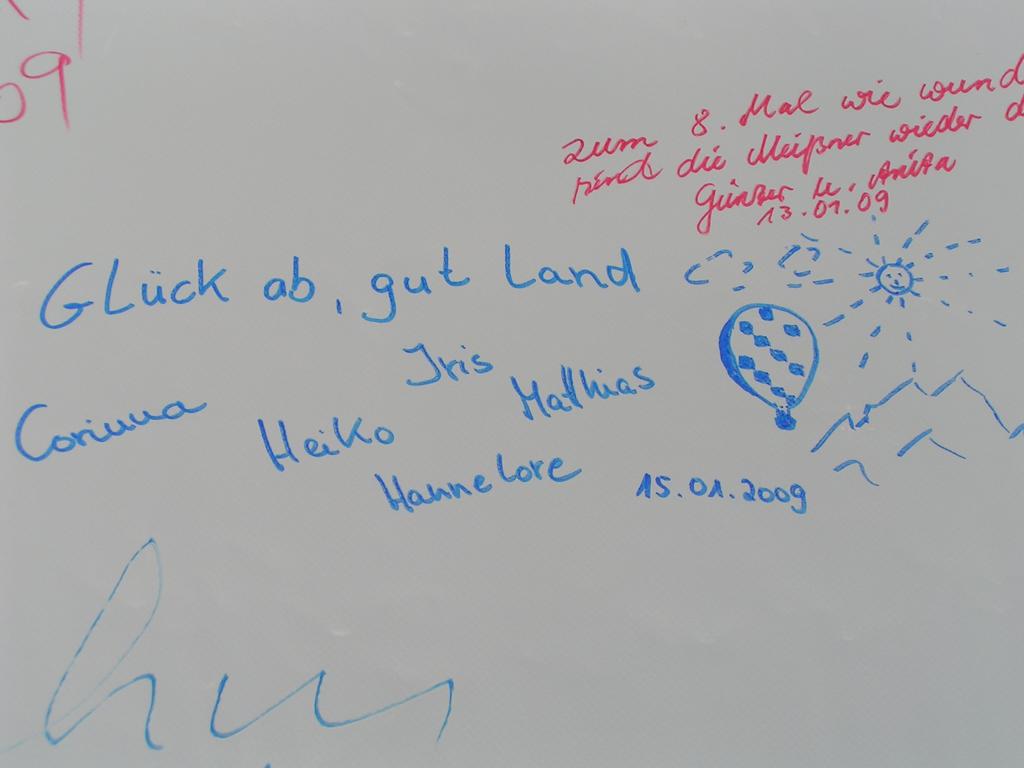 09
zum 8. Mal wie wund
sind die Meißner wieder d
Günter u. Anita
13.01.09
Glück ab, gut Land
Iris
Corinna Heiko Mathias
Hannelore 15.01.2009